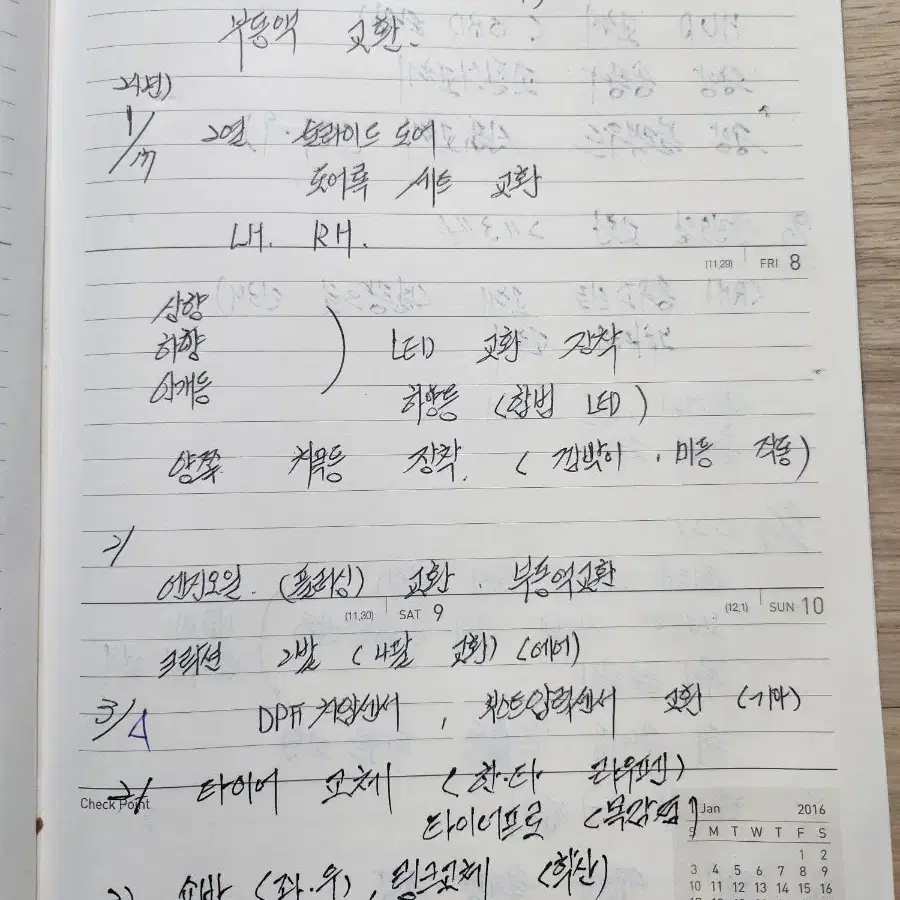 부동액 교환.
24년)
1/17 2열 · 슬라이드 도어
도어록 세트 교환
LH. RH.
(11.29) FRI 8
상향
하향
안개등
LED 교환 장착
하향등 (합법 LED)
양쪽 장착. (깜박이, 미등 작동)
2/
엔진오일. (플러싱) 교환. 부동액교환
(11.30) SAT 9 (12.1) SUN 10
2발 (교환) (에어)
3/4 DPF차압센서, 부스트압력센서 교환 (기아)
2/ 타이어 교체 (한·타 라우펜)
타이어프로
Check Point
Jan 2016
S M T W T F S
1 2
3 4 5 6 7 8 9
10 11 12 13 14 15 16
쇼바 (좌·우), 링크교체